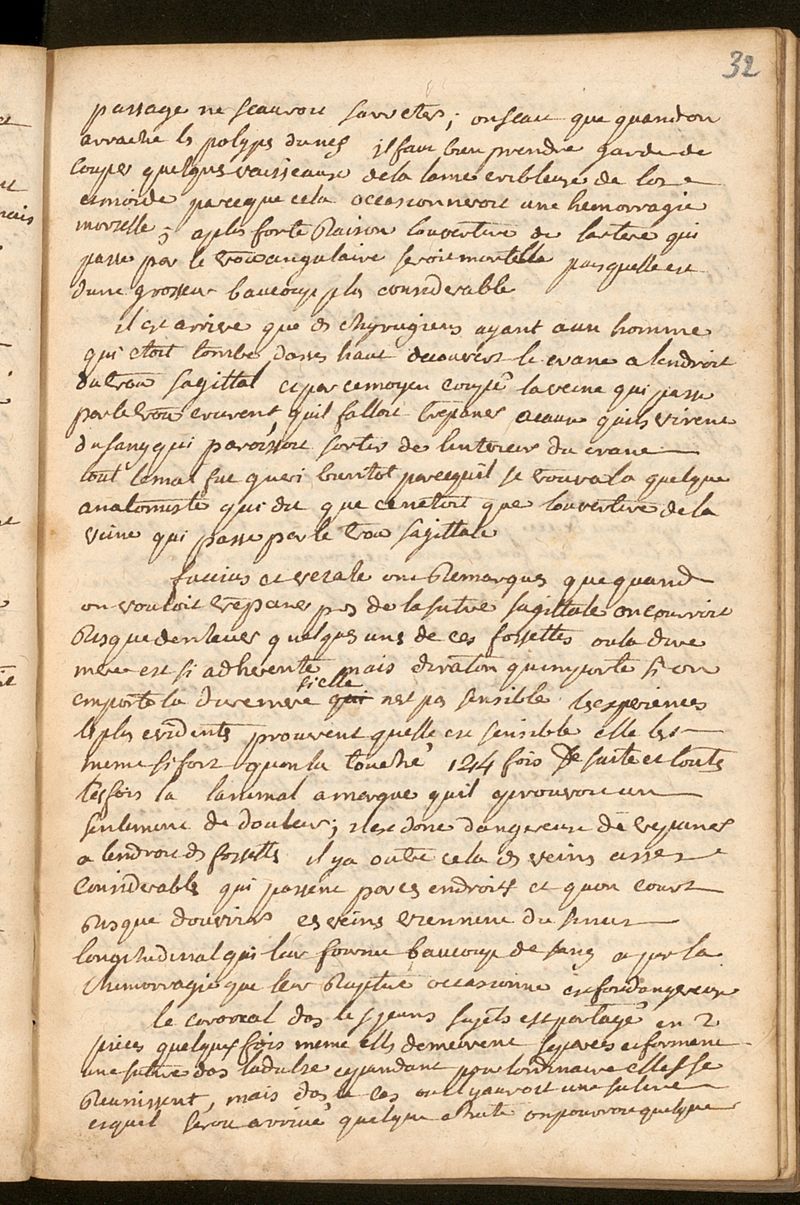 32
passage ne scauroit sarreter; onscait que quandon
arrache les polyps dunes il faut bien prendre garde de
couper quelques vaisseaux dela lame cribleuse de los e
etmoide parceque cela occasionneroit une hemorragie
mortelle; aplus forte Raison louverture de lartere qui
passe par le trou angulaire seroit mortelle puisquelle est
dune grosseur baucoup plus considerable
il est arrivé que des chyrugiens ayant a un homme
qui etoit tombé dasses haut decouvert le crane a lendroit
du trou sagittal et par cemoyen coupé la veine qui passe
par le trou crurent quil falloit trepaner acause quils virent
du sang qui paroissoit sortir de linterieur du crane
tout lemal fut gueri bientot parcequil se trouva la quelque
anatomiste qui dit que cenetoit que louverture de la
veine qui passe par le trou sagittale
et vezale ont Remarqués que quand
on vouloit trepaner pres de lasutre sagittale on couroit
Risque denlever quelques uns de ces fossettes ou la dure
mere est si adherente mais diraton quimporte si on
emporte la duremere sielle nest pas sensible les experiences
les plus evidents prouvent quelle est sensible elle lest
meme si fort quon la touché 1214 fois de suite et touts
les fois la lanimal a marque quil eprouvoit un
sentiment de douleur; il est donc dangereux de trepaner
a lendroit des fossetts il y a outre cela des veins asses
considerables qui passent par ces endroits et quon court
Risque douvrir ces veins viennent du sinus
longitudinal qui leur fournit baucoup de sang a par la
lhemorragie que leur Rupture occasionne est fort dangereuse
le coronal dans les jeuns sujets est partagé en 2
pieces quelques fois meme ells demeurent separées et forment
une suture dans ladulte cependant pour lordinaire elles se
Reunissent, mais dans le cas ou il yauroit une suture
et quil seroit arrivé quelque chute on pourroit quelque